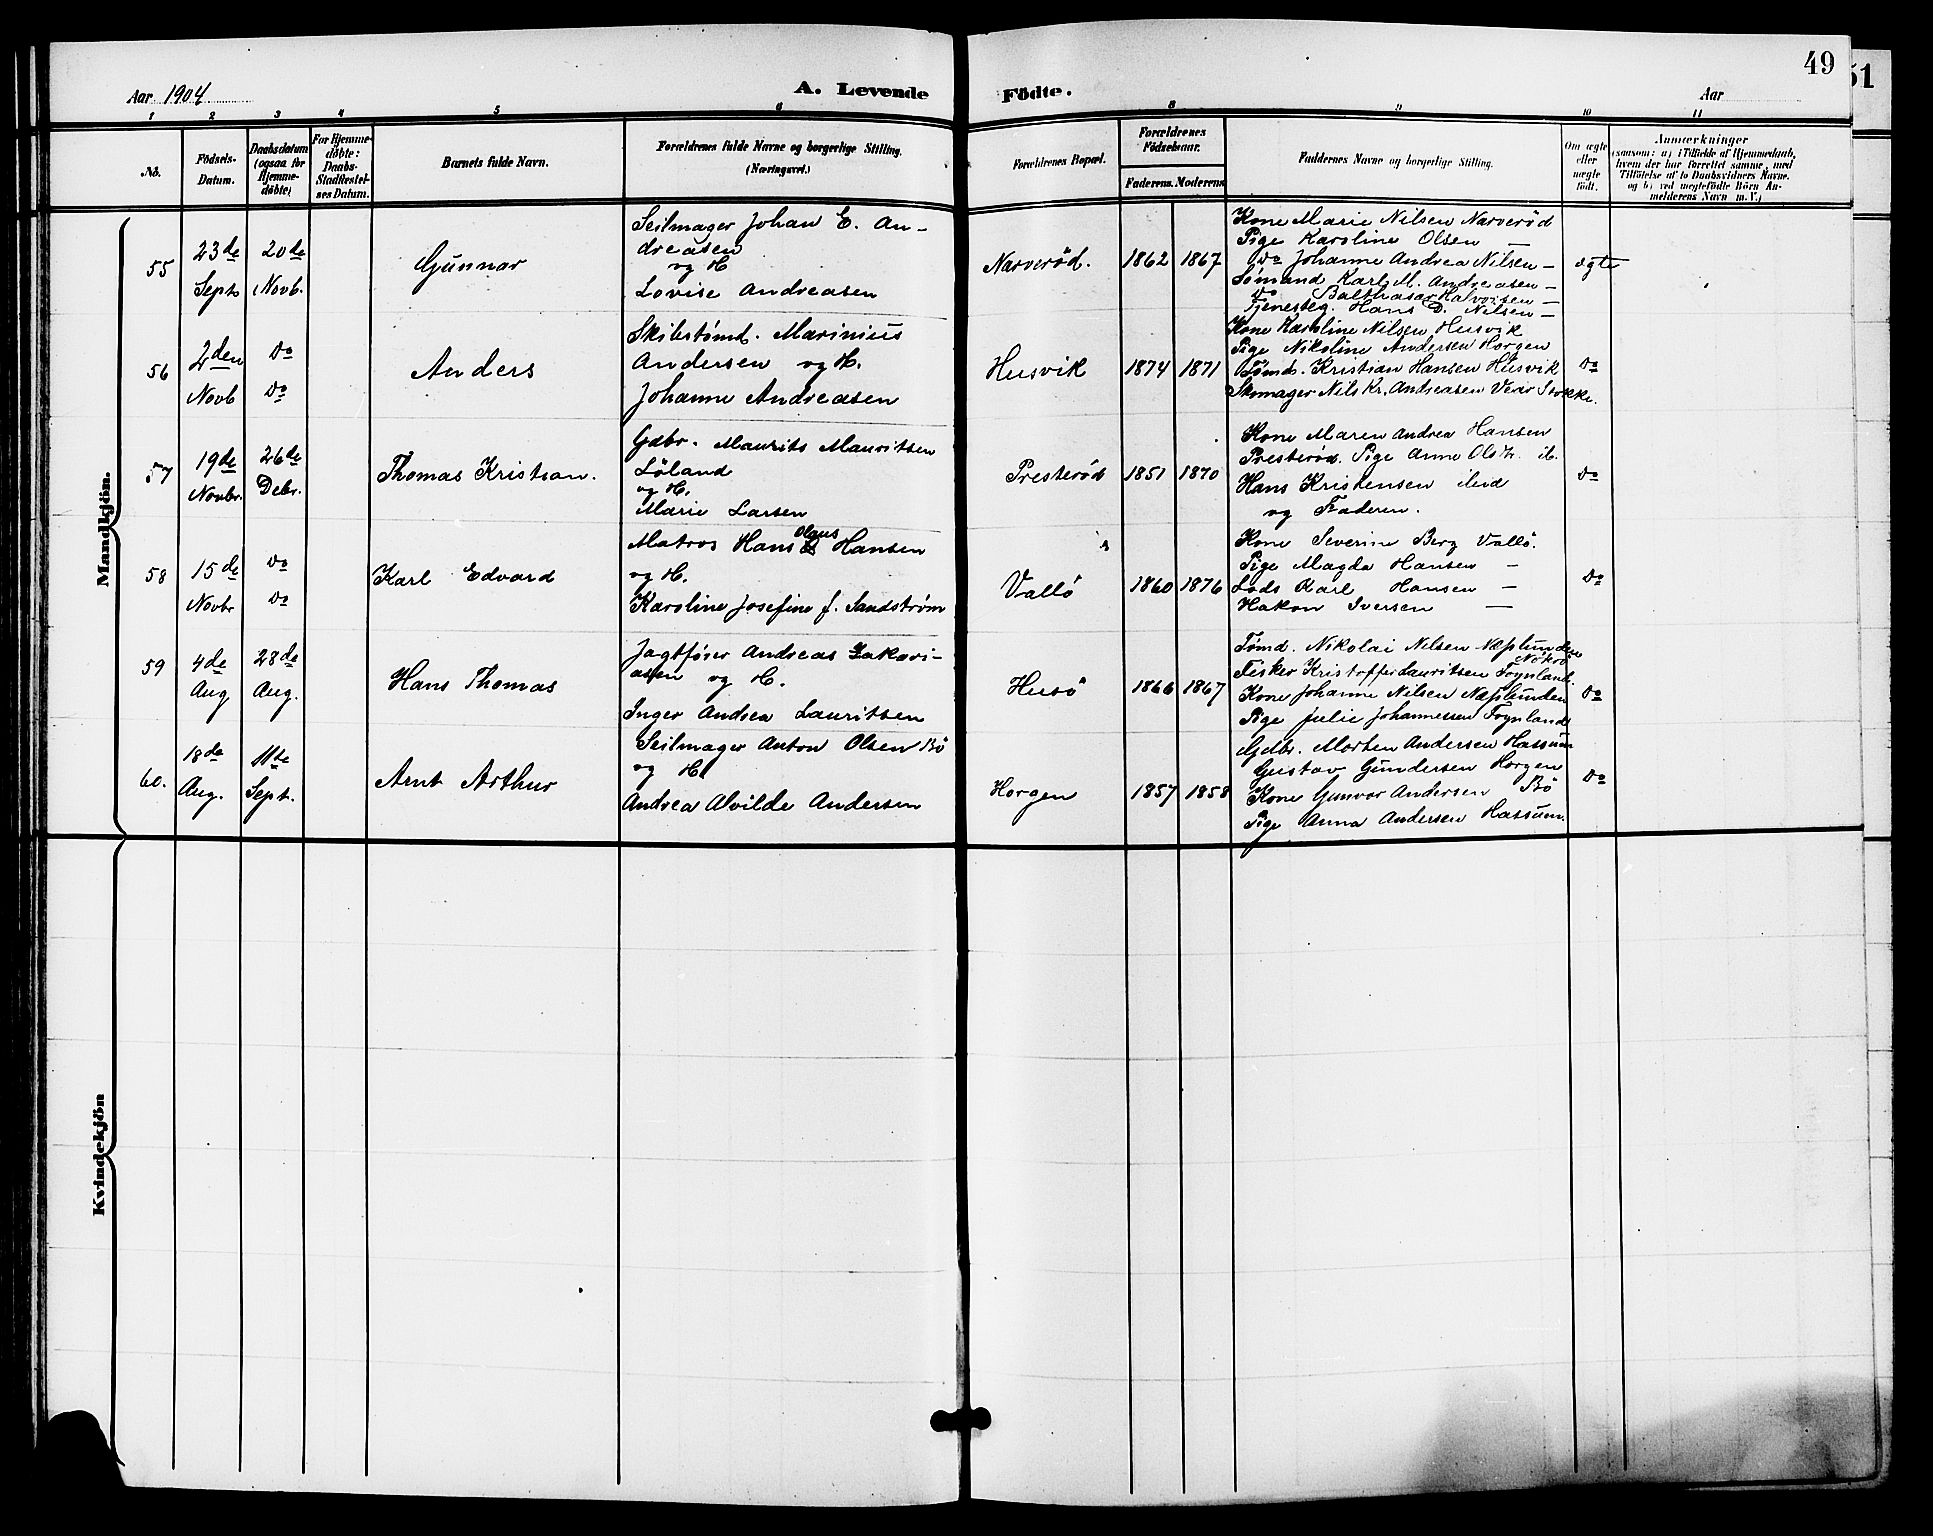 49
51
Aar 1904
A. Levende
Födte.
Aar
1 2 3 4 5 6 8 9 10 11
No.
Födsels-
Datum.
Daabsdatum
(ogsaa for
Hjemme-
döbte)
For Hjemme-
döbte:
Daabs-
Stadfestel-
ses Datum.
Barnets fulde Navn.
Forældrenes fulde Navne og borgerlige Stilling.
(Næringsvei.)
Forældrenes Bopæl.
Forældrenes
Födselsaar.
Faderens. Moderens
Faddernes Navne og borgerlige Stilling.
Om ægte
eller
uægte
födt.
Anmærkninger
(saasom: a) i Tilfælde af Hjemmedaab,
hvem der har forrettet samme, med
Tilföielse af to Daabsvidners Navne,
og b) ved uegtefödte Börn An-
melderens Navn m. V.)
Mandkjön.
55
23de
Sept
20de
Novb.
Gunnar
Seilmager Johan E. An-
dreasen
og H
Lovise Andreasen
Narverød.
1862 1867
Kone Marie Nilsen Narverød
Pige Karoline Olsen —
Do Johanne Andrea Nilsen —
Sømand Karl M. Andreasen —
Do Balthasar Halvorsen —
Tjenesteg. Hans D. Nilsen —
ægte
56
2den
Novb
Do
Do
Anders
Skibstømd. Marinius
Andersen og H.
Johanne Andreasen
Husvik
1874 1871
Kone Karoline Nilsen Husvik
Pige Nikoline Andersen Horgen
Tømd. Kristian Hansen Husvik
Skomager Nils Kr. Andreasen Vear Stokke.
Do
57
19de
Novbr.
26de
Debr.
Thomas Kristian.
Gdbr. Maurits Mauritsen
Löland
og H.
Marie Larsen
Presterød
1851 1870
Kone Maren Andrea Hansen
Presterød. Pige Anne Ols. ib.
Hans Kristensen ibid
og Faderen.
Do
58
15de
Novbr
Do
Do
Karl Edvard
Matros Hans Olaus Hansen
og H.
Karoline Josefine f. Sandstrøm
Vallö
1860 1876
Kone Severine Berg Vallö.
Pige Magda Hansen —
Lods Karl Hansen —
Hakon Iversen —
Do
59
4de
Aug
28de
Aug.
Hans Thomas
Jagtfører Andreas Zakari-
asen og H.
Inger Andrea Lauritsen
Husö
1866 1867
Tømd. Nikolai Nilsen Næslunden
Nøtterö
Fisker Kristoffer Lauritsen Föynland.
Kone Johanne Nilsen Næslunden
Pige Julie Johannessen Föynland
Do
60.
18de
Aug.
11te
Sept.
Arnt Arthur
Seilmager Anton Olsen Bö
og H
Andrea Alvilde Andersen
Horgen
1857 1858
Gdbr. Morten Andersen Hassum
Gustav Gundersen Horgen
Kone Gunvor Andersen Bö
Pige Anna Andersen Hassum.
Do
Kvindekjön